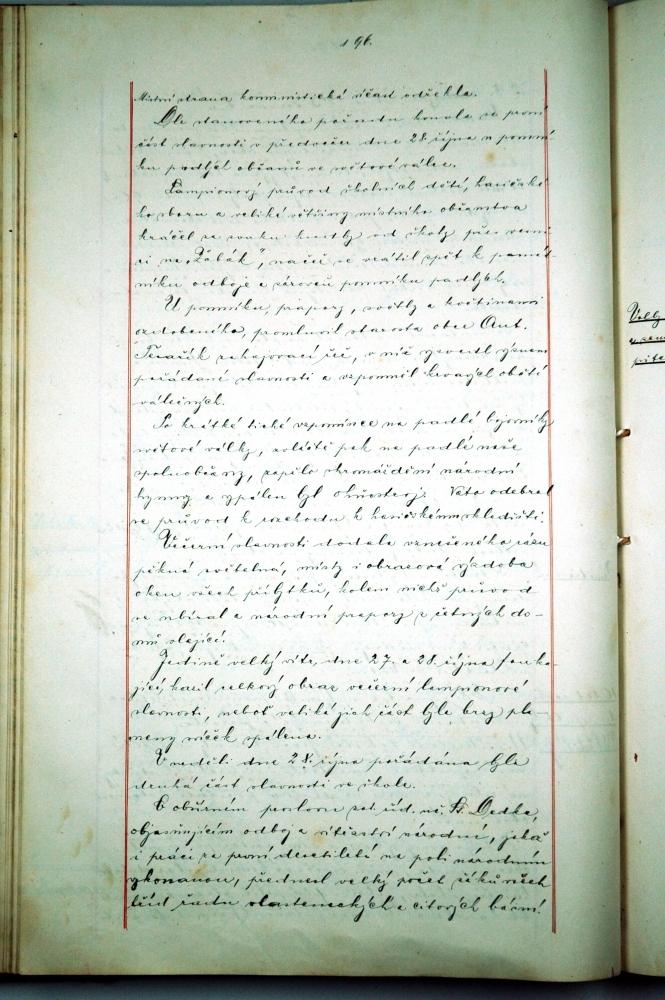 196.
Místní strana komunistická účast odřekla.
Dle stanoveného pořadu konala se první
část slavnosti v předvečer dne 28. října u pomní-
ku padlých občanů ve světové válce.
Lampionový průvod školních dětí, hasičské-
ho sboru a veliké většiny místního občanstva
kráčel za zvuku hudby od školy přes vesni-
ci na „Žabák", načež se vrátil zpět k památ-
níku odboje a zároveň pomníku padlých.
U pomníku, prapory, světly a květinami
ozdobeného, promluvil starosta obce Ant.
zahajovací řeč, v níž uvedl význam
pořádané slavnosti a vzpomněl krvavých obětí
válečných.
Po krátké tiché vzpomínce na padlé bojovníky
světové války, zvláště pak na padlé naše
spoluobčany, zapělo shromáždění národní
hymny a vypálen byl ohňostroj. Nato odebral
se průvod k rozchodu k hasičskému skladišti.
Večerní slavnosti dodala vznešeného rázu
pěkná světelná, místy i obrazová výzdoba
oken všech příbytků, kolem nichž průvod
se ubíral a národní prapory z četných do-
mů vlající.
Jedině velký vítr, dne 27. a 28. října fouka-
jící, kazil celkový obraz večerní lampionové
slavnosti, neboť veliká jich část byla brzy pla-
meny svíček spálena.
V neděli dne 28. října pořádána byla
druhá část slavnosti ve škole.
S obšírném proslovu zat. úd. uč. Fr. Dedka,
objasňujícím odboj a vítězství národní, jakož
i práci za první desetiletí na poli národním
vykonanou, přednesl velký počet žáků všech
tříd řadu vlasteneckých a citových básní.